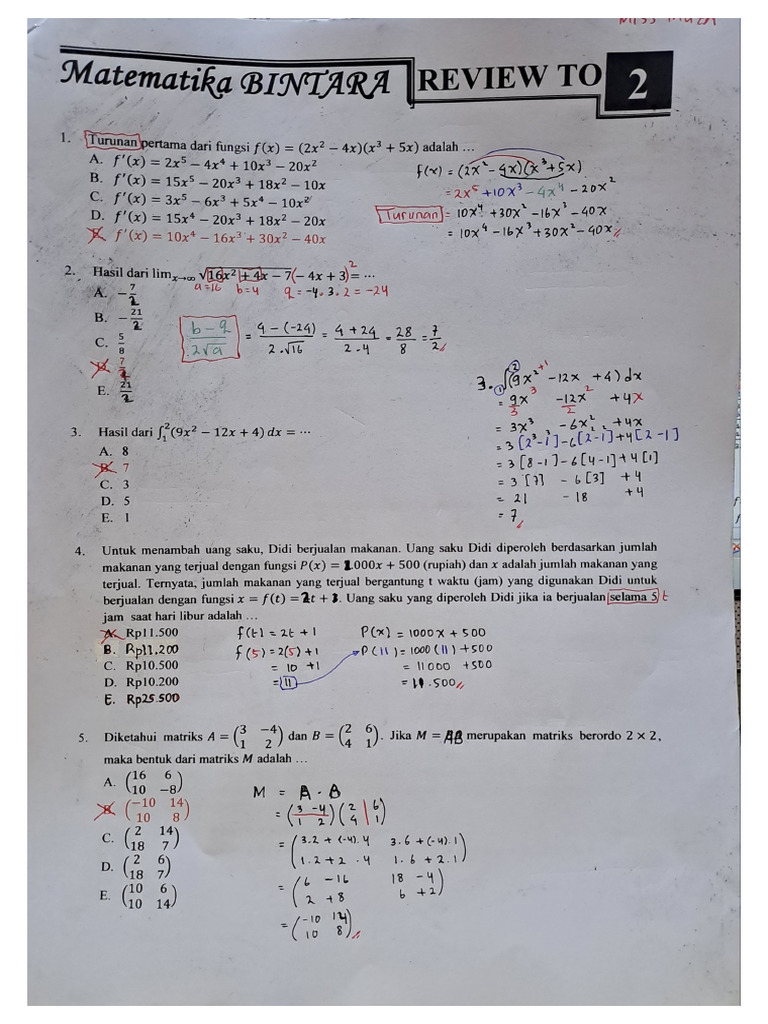 MISS MUZA
Matematika BINTARA REVIEW TO 2
1. Turunan pertama dari fungsi f(x) = (2x² − 4x)(x³ + 5x) adalah …
A. f′(x) = 2x⁵ − 4x⁴ + 10x³ − 20x²
B. f′(x) = 15x⁵ − 20x³ + 18x² − 10x
C. f′(x) = 3x⁵ − 6x³ + 5x⁴ − 10x²
D. f′(x) = 15x⁴ − 20x³ + 18x² − 20x
E. f′(x) = 10x⁴ − 16x³ + 30x² − 40x
f(x) = (2x² − 4x)(x³ + 5x)
= 2x⁵ + 10x³ − 4x⁴ − 20x²
Turunan = 10x⁴ + 30x² − 16x³ − 40x
= 10x⁴ − 16x³ + 30x² − 40x //
2. Hasil dari lim x→∞ √16x² + 4x − 7 (− 4x + 3)² = ⋯
a=16 b=4 q = −4 . 3 . 2 = −24
A. −7/2
B. −21/2
C. 5/8
D. 7/2
E. 21/2
b − q / 2√a = 4 − (−24) / 2.√16 = 4 + 24 / 2 . 4 = 28/8 = 7/2 //
3. Hasil dari ∫₁²(9x² − 12x + 4) dx = ⋯
A. 8
B. 7
C. 3
D. 5
E. 1
3. ∫₁²(9x²⁺¹ − 12x + 4) dx
= 9x³/3 − 12x²/2 + 4x
= 3x³ − 6x² + 4x
= 3 [2³ − 1³] − 6 [2² − 1²] + 4 [2 − 1]
= 3 [8 − 1] − 6 [4 − 1] + 4 [1]
= 3 [7] − 6 [3] + 4
= 21 − 18 + 4
= 7 //
4. Untuk menambah uang saku, Didi berjualan makanan. Uang saku Didi diperoleh berdasarkan jumlah
makanan yang terjual dengan fungsi P(x) = 1000x + 500 (rupiah) dan x adalah jumlah makanan yang
terjual. Ternyata, jumlah makanan yang terjual bergantung t waktu (jam) yang digunakan Didi untuk
berjualan dengan fungsi x = f(t) = 2t + 1. Uang saku yang diperoleh Didi jika ia berjualan selama 5 t
jam saat hari libur adalah …
A. Rp11.500
B. Rp11.200
C. Rp10.500
D. Rp10.200
E. Rp25.500
f(t) = 2t + 1
f (5) = 2(5) + 1
= 10 + 1
= 11
P(x) = 1000x + 500
P(11) = 1000 (11) + 500
= 11000 + 500
= 11.500 //
5. Diketahui matriks A = (3 −4 / 1 2) dan B = (2 6 / 4 1). Jika M = AB merupakan matriks berordo 2 × 2,
maka bentuk dari matriks M adalah …
A. (16 6 / 10 −8)
B. (−10 14 / 10 8)
C. (2 14 / 18 7)
D. (2 6 / 18 7)
E. (10 6 / 10 14)
M = A . B
= (3 −4 / 1 2) (2 6 / 4 1)
= (3.2 + (−4).4 3.6 + (−4).1 / 1.2 + 2 . 4 1.6 + 2.1)
= (6 − 16 18 − 4 / 2 + 8 6 + 2)
= (−10 14 / 10 8) //